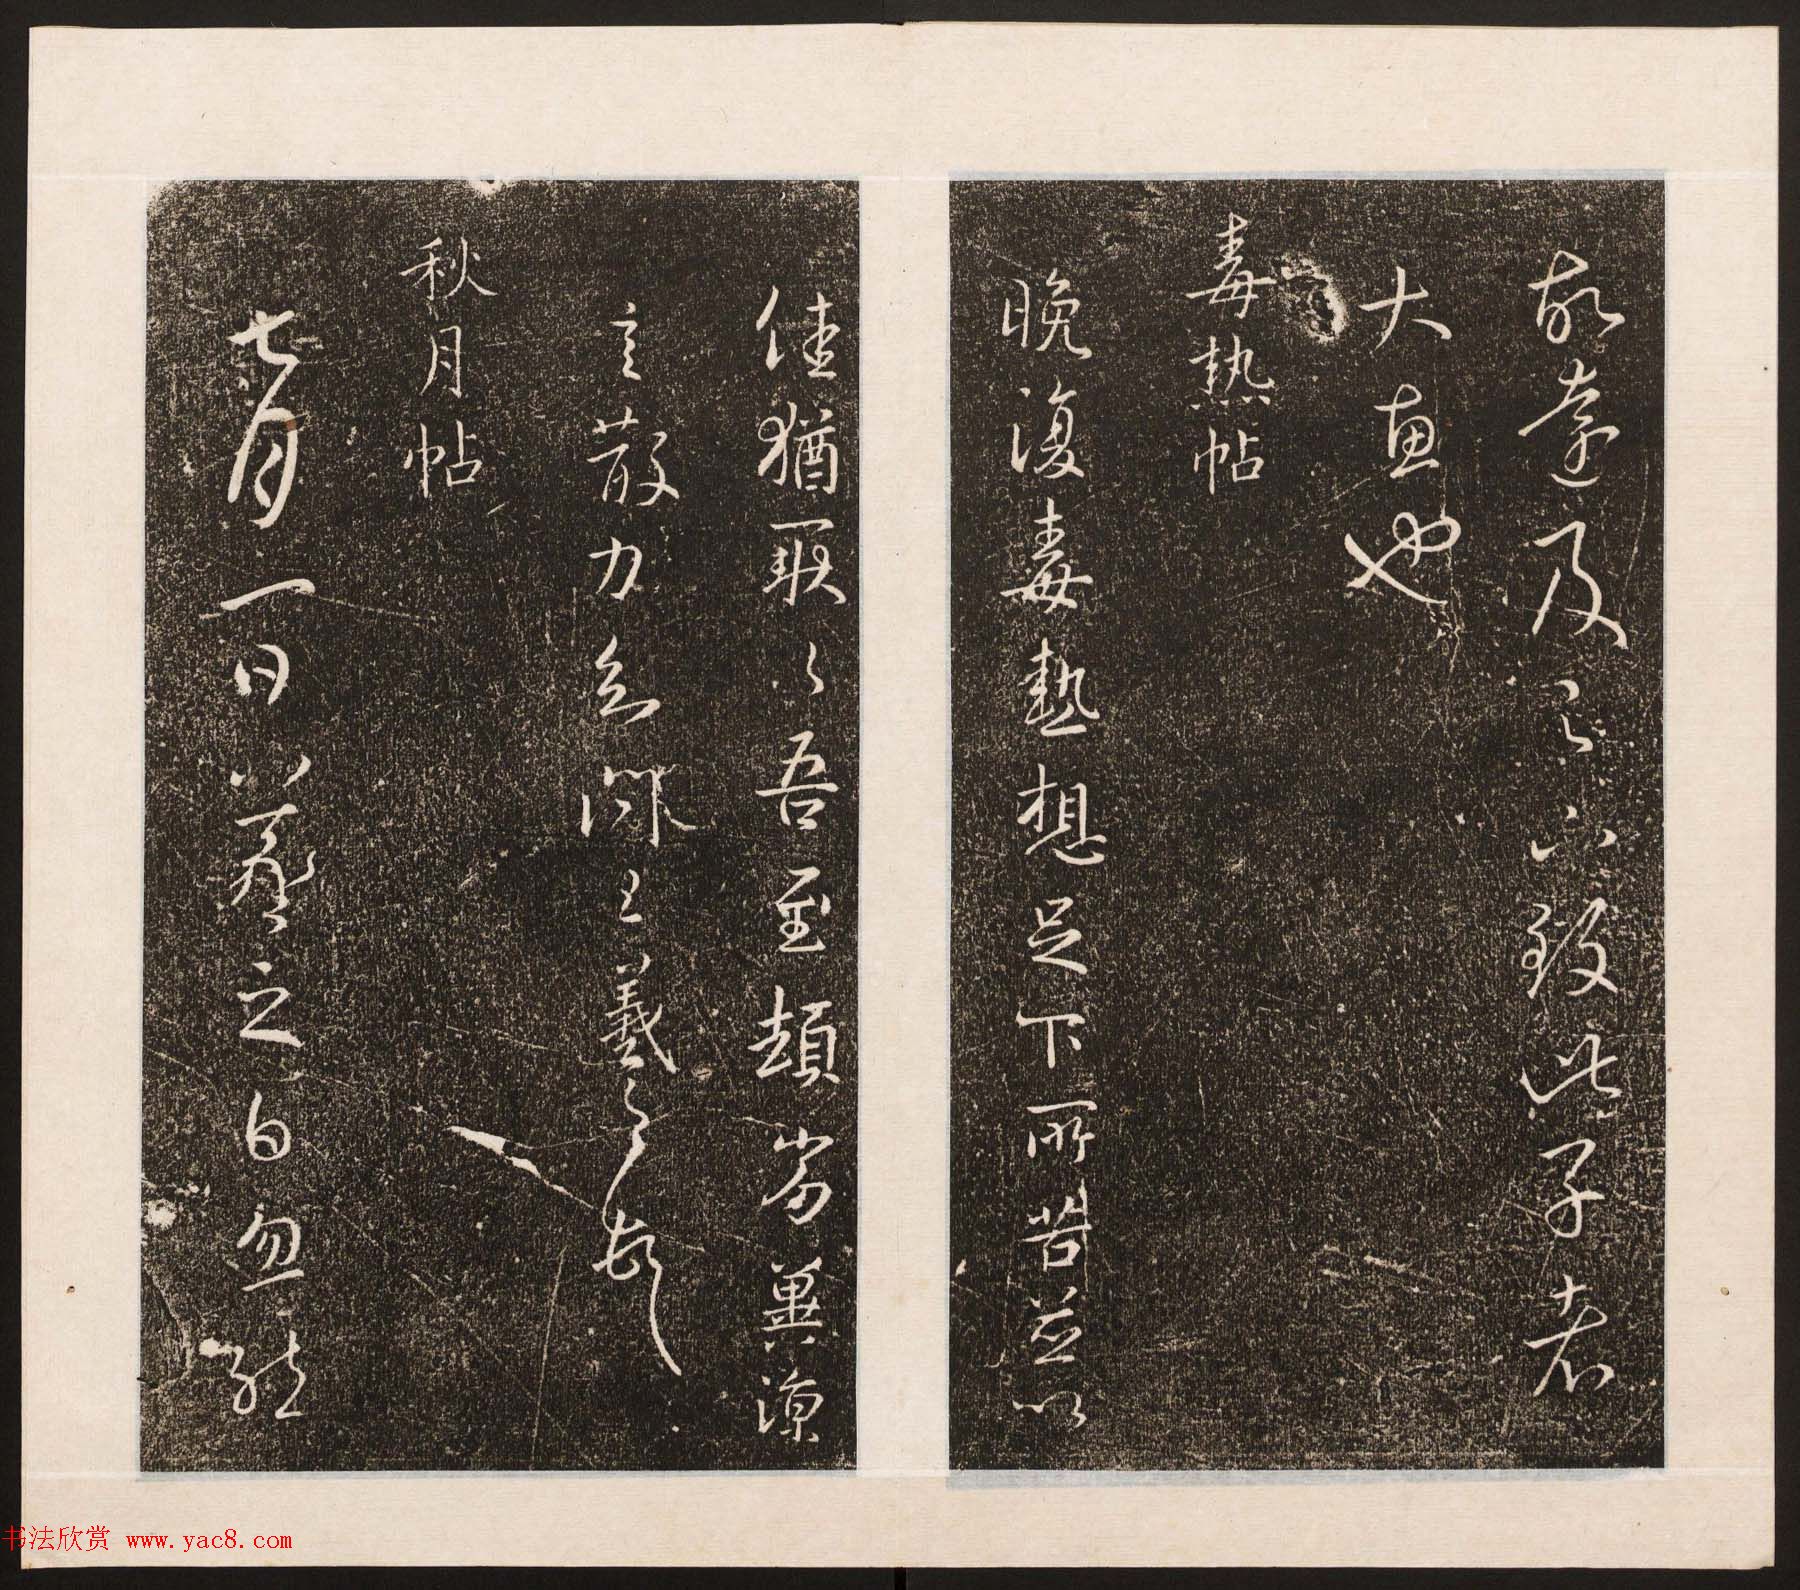 故遠及足下致此子者
大惠也
毒热帖
晚復毒熱想足下所苦並以
佳猶耿々吾至頓劣冀涼
言散力知問王羲之頓首
秋月帖
七月一日羲之白忽然
书法欣赏 www.yac8.com